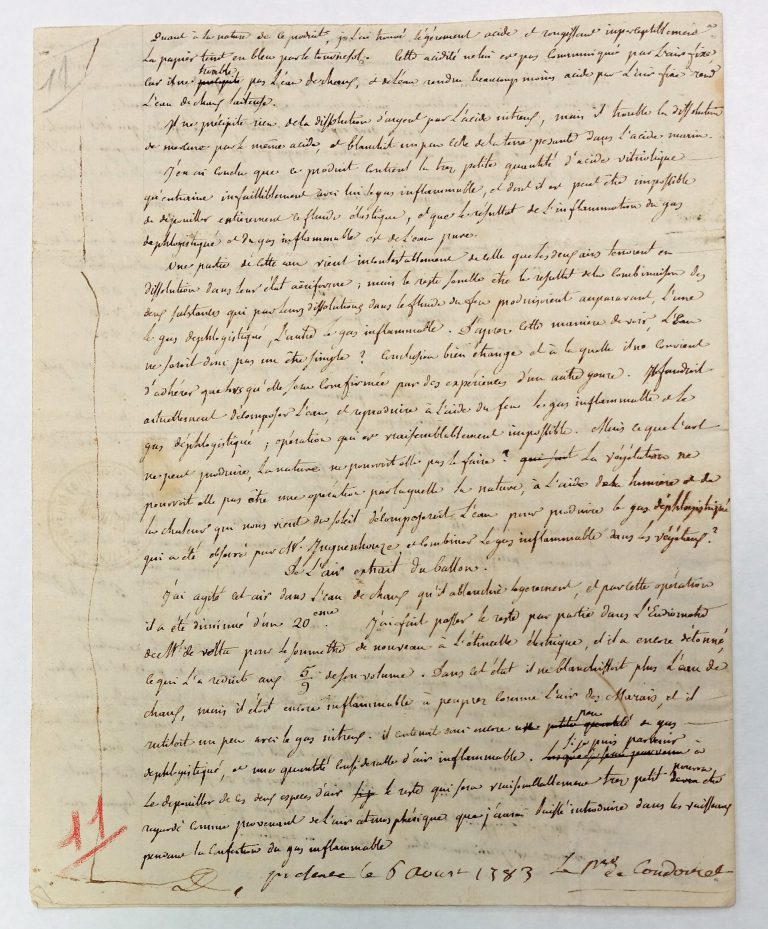 11
Quant à la nature de ce produit, je l'ai trouvé légèrement acide et rougissant imperceptiblement
le papier teint en bleu par le tournesol. Cette acidité ne lui est pas communiqué par l'air fixe,
car il ne trouble pas l'eau de chaux, & de l'eau rendue beaucoup moins acide par l'air fixe rend
l'eau de chaux laiteuse.
Il ne précipite rien de la dissolution d'argent par l'acide nitreux, mais il trouble la dissolution
de mercure par le même acide, et blanchit un peu celle de la terre pesante dans l'acide marin.
J'en ai conclu que ce produit contient la très petite quantité d'acide vitriolique
qu'entraine infailliblement avec lui le gas inflammable, et dont il est peut être impossible
de dépouiller entièrement ce fluide élastique, et que le résultat de l'inflammation du gas
déphlogistiqué et du gas inflammable est de l'eau pure.
Une partie de cette eau vient incontestablement de celle que les deux airs tenoient en
dissolution dans leur état aériforme ; mais le reste semble être le résultat de la combinaison des
deux substances qui par leurs dissolutions dans le fluide du feu produisoient auparavant, l'une
le gas déphlogistiqué, l'autre le gas inflammable. D'après cette manière de voir, l'Eau
ne seroit donc pas un être simple ? Conclusion bien étrange et à la quelle il ne convient
d'adhérer que lorsqu'elle sera comfirmée par des expériences d'un autre genre. Il faudroit
actuellement décomposer l'eau, et reproduire à l'aide du feu le gas inflammable et le
gas déphlogistiqué ; opération qui est vraisemblablement impossible. Mais ce que l'art
ne peut produire, la nature ne pourroit elle pas le faire ? La végétation ne
pourroit elle pas être une opération par laquelle la nature, à l'aide de la lumière et de
la chaleur qui nous vient du soleil décomposeroit l'eau pour produire le gas déphlogistiqué
qui a été observé par Mr. Inguenhouze, et combiner le gas inflammable dans les végétaux ?
De l'air extrait du ballon.
J'ai agité cet air dans l'eau de chaux qu'il a blanchie légèrement, et par cette opération
il a été diminué d'un 20eme. J'ai fait passer le reste par partie dans l'Eudiomètre
de Mr. de Volta pour le soumettre de nouveau à l'étincelle électrique, et il a encore détonné,
ce qui l'a réduit aux 5/9 de son volume. Dans cet état il ne blanchissoit plus l'eau de
chaux, mais il étoit encore inflammable à peu près comme l'air des Marais, et il
rutiloit un peu avec le gas nitreux. il contenoit donc encore un peu de gas
déphlogistiqué, et une quantité considérable d'air inflammable. Si je puis parvenir à
le dépouiller de ces deux espèces d'air le reste qui sera vraisemblablement très petit pourra être
regardé comme provenant de l'air atmosphérique que j'aurai laissé introduire dans les vaisseaux
pendant la confection du gas inflammable
le 6 Aoust 1783 Le Mis de Condorcet
11